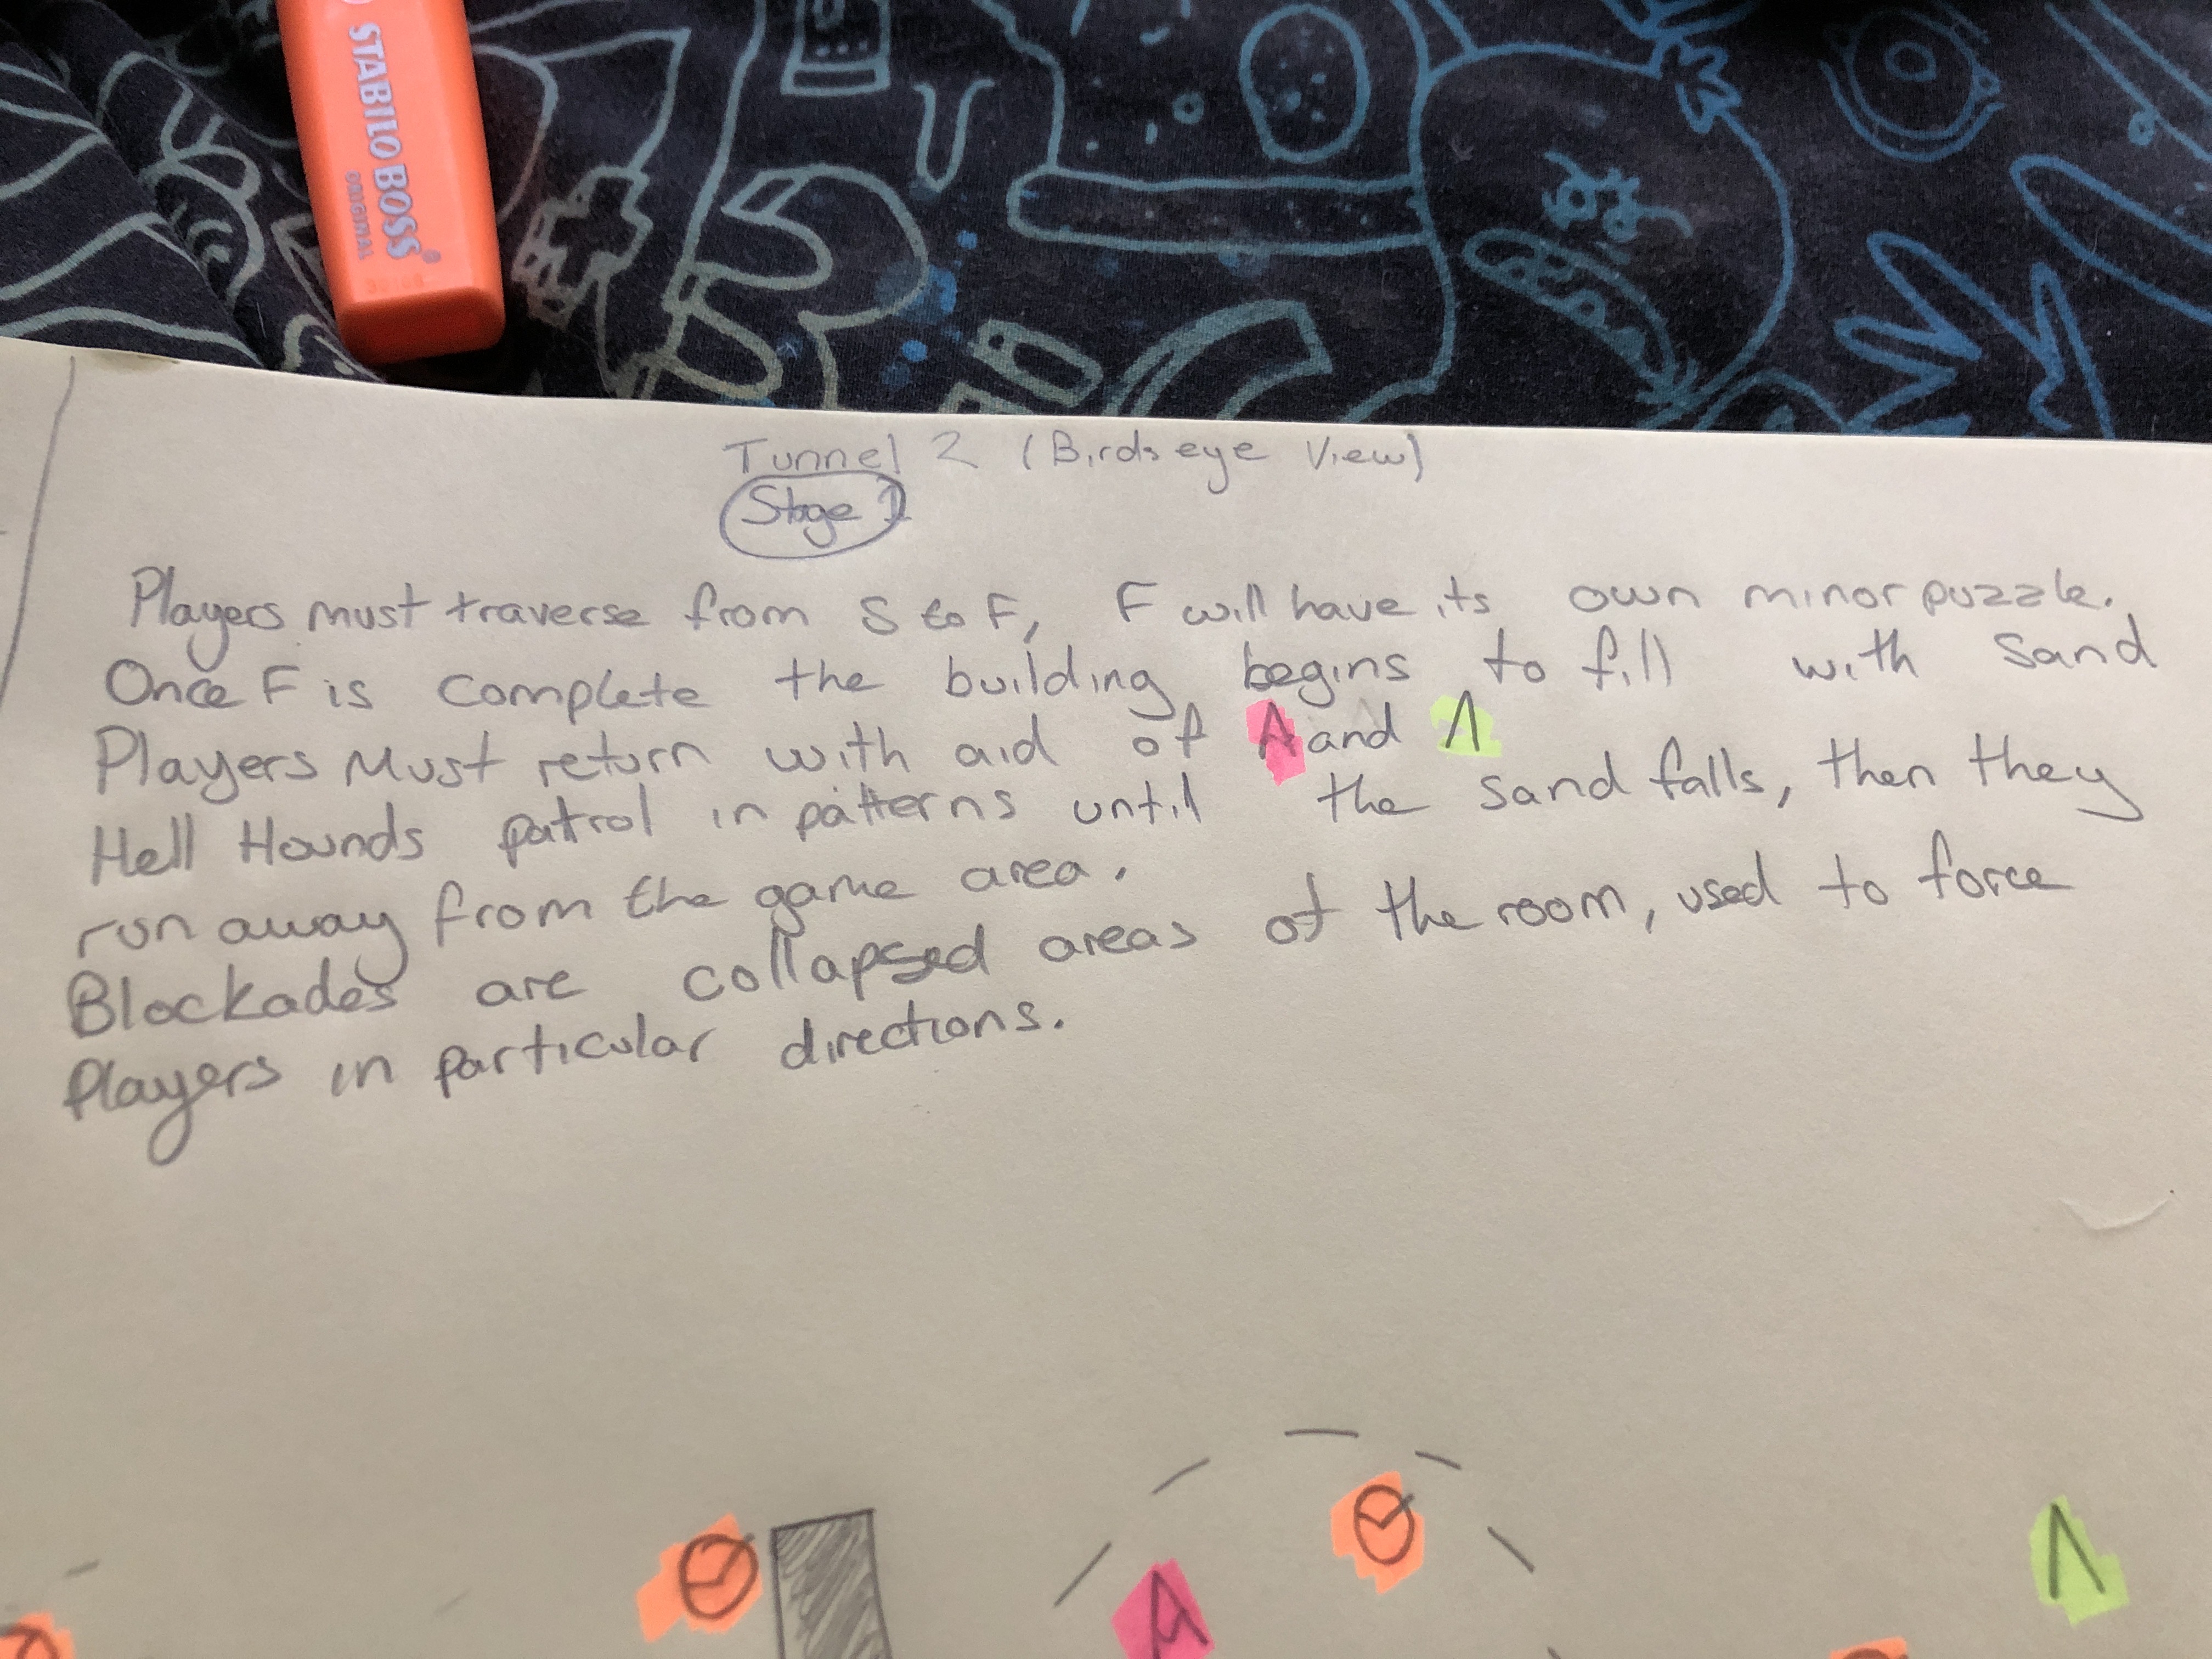 Tunnel 2 (Birdseye View)
Stage 1
Players must traverse from S to F, F will have its own minor puzzle.
Once F is complete the building begins to fill with Sand
Players Must return with aid of A and Λ
Hell Hounds patrol in patterns until the sand falls, then they
run away from the game area.
Blockades are collapsed areas of the room, used to force
Players in particular directions.
A
Λ
STABILO BOSS
ORIGINAL